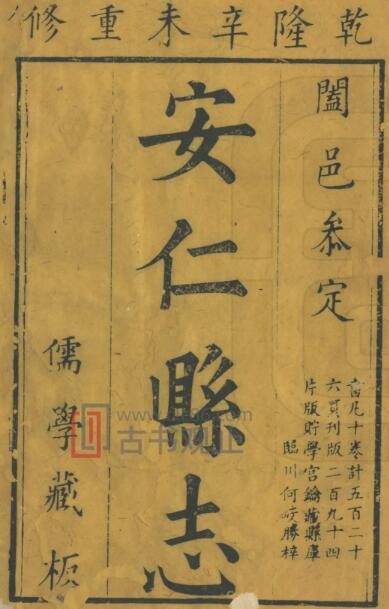 乾隆辛未重修
闔邑叅定
書凡十卷計五百二十
六頁刊版二百九十四
片版貯學宮鑰藏縣庫
臨川何峻勝梓
安仁縣志
儒學藏板
古书观止